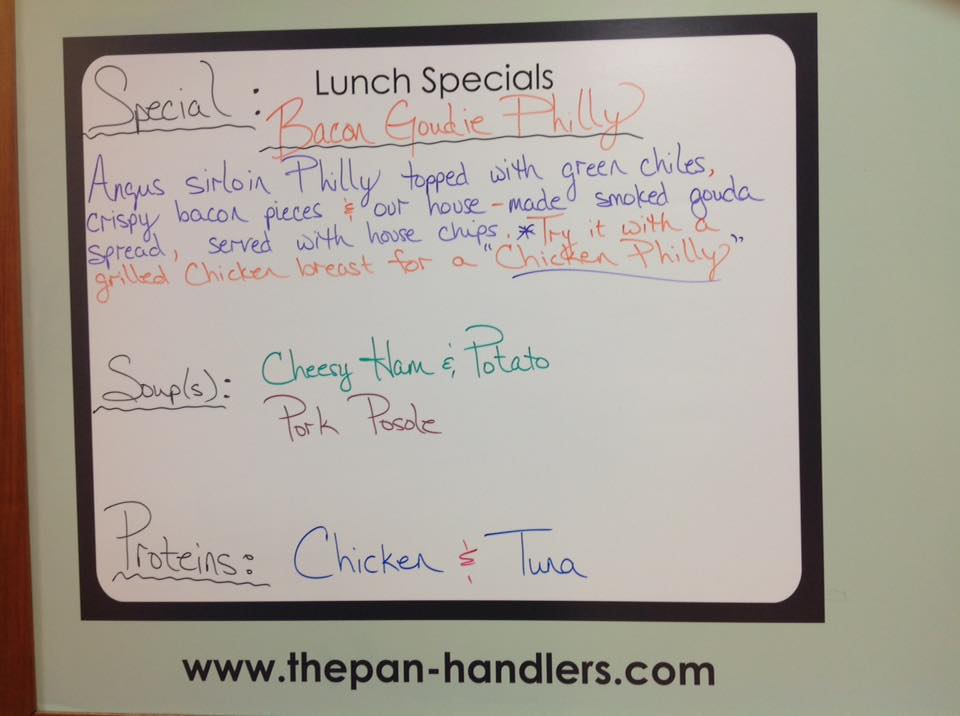 Lunch Specials
Special: Bacon Goudie Philly
Angus sirloin Philly topped with green chiles,
crispy bacon pieces & our house-made smoked gouda
spread, served with house chips. *Try it with a
grilled Chicken breast for a "Chicken Philly"
Soup(s): Cheesy Ham & Potato
Pork Posole
Proteins: Chicken & Tuna
www.thepan-handlers.com